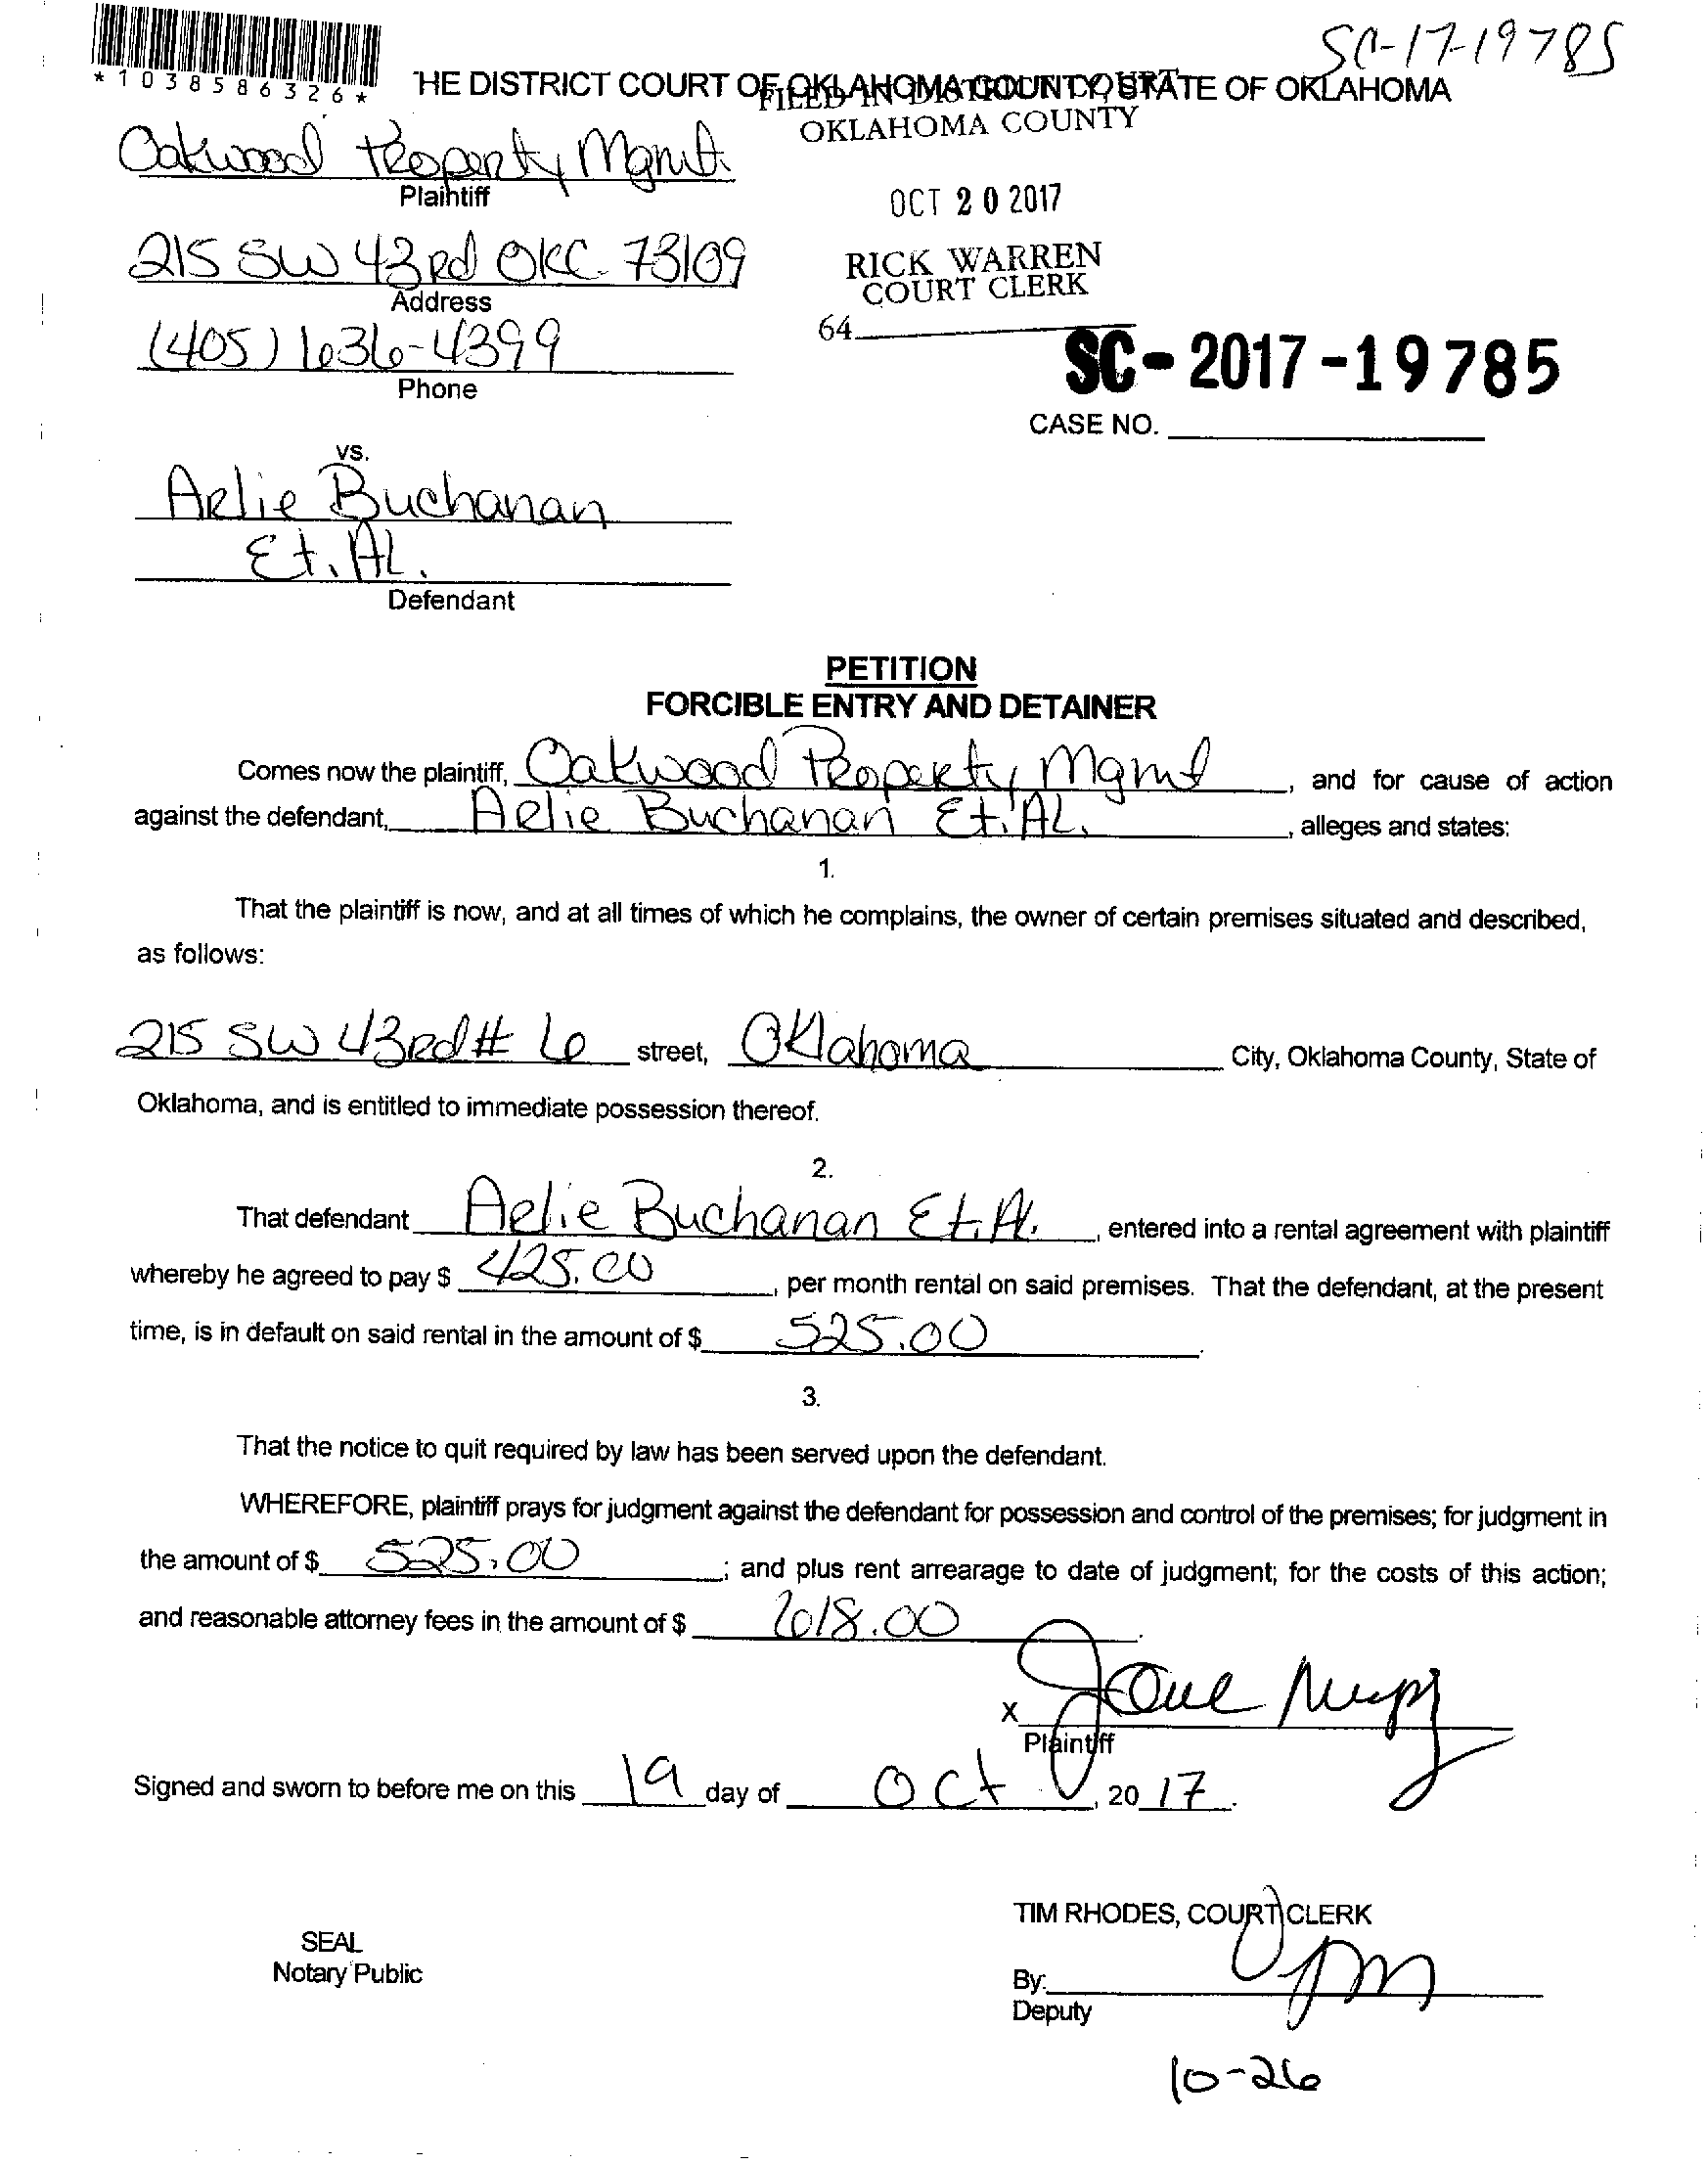 SC-17-19785
*1038586326*
HE DISTRICT COURT OF OKLAHOMA COUNTY, STATE OF OKLAHOMA
FILED IN DISTRICT COURT
OKLAHOMA COUNTY
Oakwood Property Mgmt.
Plaintiff
OCT 20 2017
215 SW 43Rd OKC. 73109
Address
RICK WARREN
COURT CLERK
(405) 636-4399
Phone
64
SC-2017-19785
CASE NO.
vs.
Arlie Buchanan
Et. AL.
Defendant
PETITION
FORCIBLE ENTRY AND DETAINER
Comes now the plaintiff, Oakwood Property Mgmt, and for cause of action
against the defendant, Arlie Buchanan Et. AL., alleges and states:
1.
That the plaintiff is now, and at all times of which he complains, the owner of certain premises situated and described,
as follows:
215 SW 43Rd # 6 street, Oklahoma City, Oklahoma County, State of
Oklahoma, and is entitled to immediate possession thereof.
2.
That defendant Arlie Buchanan Et. Al., entered into a rental agreement with plaintiff
whereby he agreed to pay $ 425.00, per month rental on said premises. That the defendant, at the present
time, is in default on said rental in the amount of $ 525.00.
3.
That the notice to quit required by law has been served upon the defendant.
WHEREFORE, plaintiff prays for judgment against the defendant for possession and control of the premises; for judgment in
the amount of $ 525.00; and plus rent arrearage to date of judgment; for the costs of this action;
and reasonable attorney fees in the amount of $ 2018.00.
X
Plaintiff
Signed and sworn to before me on this 19 day of Oct, 20 17.
TIM RHODES, COURT CLERK
SEAL
Notary Public
By:
Deputy
10-26